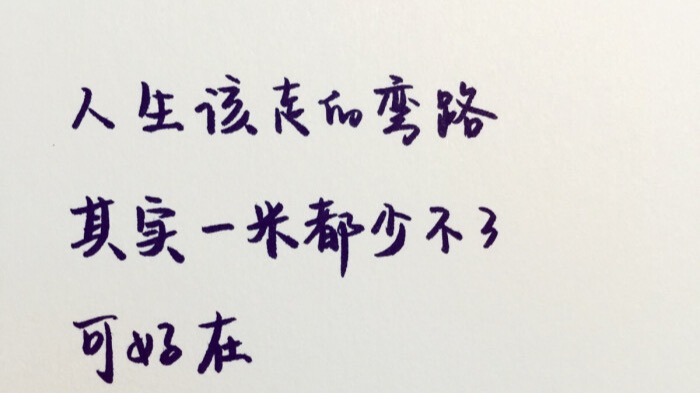 人生该走的弯路
其实一米都少不了
可好在